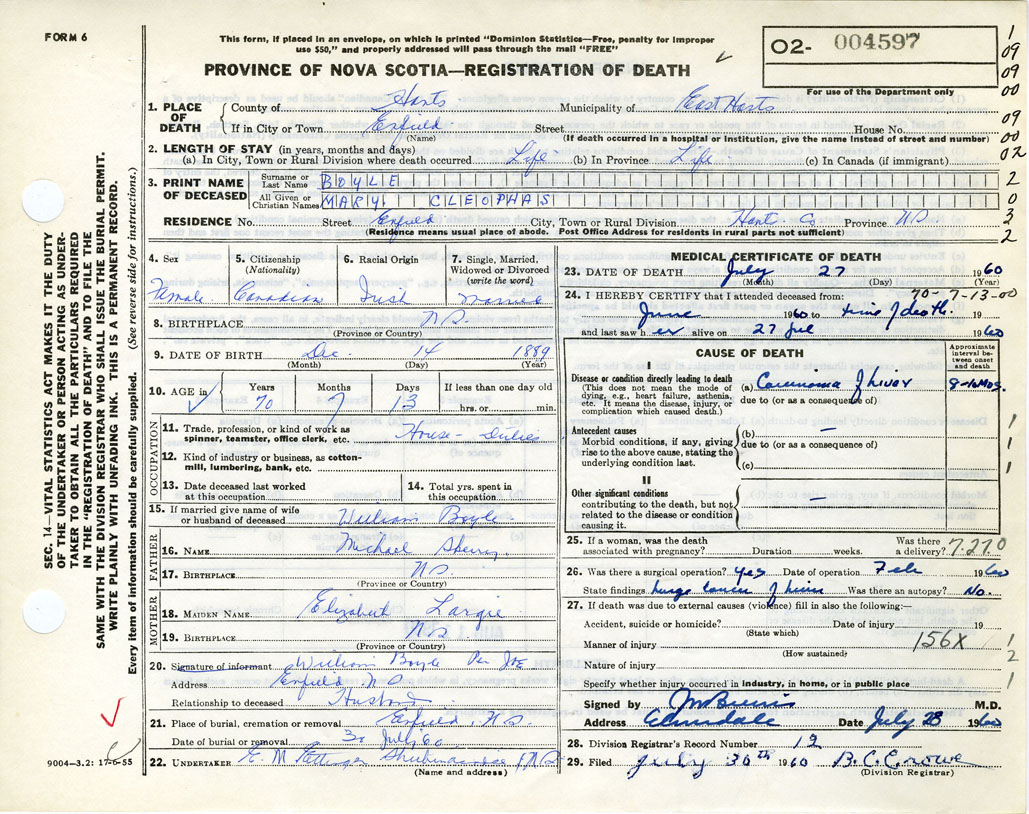 FORM 6
This form, if placed in an envelope, on which is printed "Dominion Statistics—Free, penalty for improper
use $50," and properly addressed will pass through the mail "FREE"
PROVINCE OF NOVA SCOTIA—REGISTRATION OF DEATH
O2- 004597
For use of the Department only
1
09
09
00
09
00
02
2
0
3
2
1. PLACE OF DEATH County of Hants Municipality of East Hants
If in City or Town Enfield Street House No.
(Name) (If death occurred in a hospital or institution, give the name instead of street and number)
2. LENGTH OF STAY (in years, months and days)
(a) In City, Town or Rural Division where death occurred Life (b) In Province Life (c) In Canada (if immigrant)
3. PRINT NAME OF DECEASED Surname or Last Name BOYLE
All Given or Christian Names MARY CLEOPHAS
RESIDENCE No. Street Enfield City, Town or Rural Division Hant Co Province NS
(Residence means usual place of abode. Post Office Address for residents in rural parts not sufficient)
4. Sex 5. Citizenship (Nationality) 6. Racial Origin 7. Single, Married, Widowed or Divorced (write the word)
Female Canadian Irish Married
8. BIRTHPLACE NS
(Province or Country)
9. DATE OF BIRTH Dec. 14 1889
(Month) (Day) (Year)
10. AGE in Years Months Days If less than one day old
70 7 13 hrs. or min.
OCCUPATION
11. Trade, profession, or kind of work as spinner, teamster, office clerk, etc. House-Duties
12. Kind of industry or business, as cotton-mill, lumbering, bank, etc.
13. Date deceased last worked at this occupation 14. Total yrs. spent in this occupation
15. If married give name of wife or husband of deceased William Boyle
FATHER
16. NAME Michael
17. BIRTHPLACE NS
(Province or Country)
MOTHER
18. MAIDEN NAME Elizabeth Largie
19. BIRTHPLACE NS
(Province or Country)
20. Signature of informant William Boyle Per JOE
Address Enfield NS
Relationship to deceased Husband
21. Place of burial, cremation or removal Enfield, NS
Date of burial or removal 30 July 60
22. UNDERTAKER E. M. Ettinger Shubenacadie NS
(Name and address)
MEDICAL CERTIFICATE OF DEATH
23. DATE OF DEATH July 27 1960
(Month) (Day) (Year)
70- 7-13-00
24. I HEREBY CERTIFY that I attended deceased from:
June 1960 to time of death. 19
and last saw her alive on 27 Jul 1960
CAUSE OF DEATH
Approximate interval between onset and death
I
Disease or condition directly leading to death
(This does not mean the mode of dying, e.g., heart failure, asthenia, etc. It means the disease, injury, or complication which caused death.)
(a) Carcinoma of Liver 8-10 Mos.
due to (or as a consequence of)
Antecedent causes
Morbid conditions, if any, giving rise to the above cause, stating the underlying condition last.
(b) —
due to (or as a consequence of)
(c)
1
1
1
II
Other significant conditions
contributing to the death, but not related to the disease or condition causing it.
—
25. If a woman, was the death associated with pregnancy? Duration weeks. Was there a delivery? 7.27.0
26. Was there a surgical operation? yes Date of operation Feb 1960
State findings large cancer of liver Was there an autopsy? No.
27. If death was due to external causes (violence) fill in also the following:—
Accident, suicide or homicide? Date of injury 19
(State which)
Manner of injury 156X
(How sustained)
Nature of injury
Specify whether injury occurred in industry, in home, or in public place
1
2
1
Signed by M.D.
Address Elmsdale Date July 28 1960
28. Division Registrar's Record Number 12
29. Filed July 30th 1960 B.C. Crowe
(Division Registrar)
SEC. 14—VITAL STATISTICS ACT MAKES IT THE DUTY
OF THE UNDERTAKER OR PERSON ACTING AS UNDER-
TAKER TO OBTAIN ALL THE PARTICULARS REQUIRED
IN THE "REGISTRATION OF DEATH" AND TO FILE THE
SAME WITH THE DIVISION REGISTRAR WHO SHALL ISSUE THE BURIAL PERMIT.
WRITE PLAINLY WITH UNFADING INK. THIS IS A PERMANENT RECORD.
Every item of information should be carefully supplied. (See reverse side for instructions.)
9004-3.2: 17-6-55